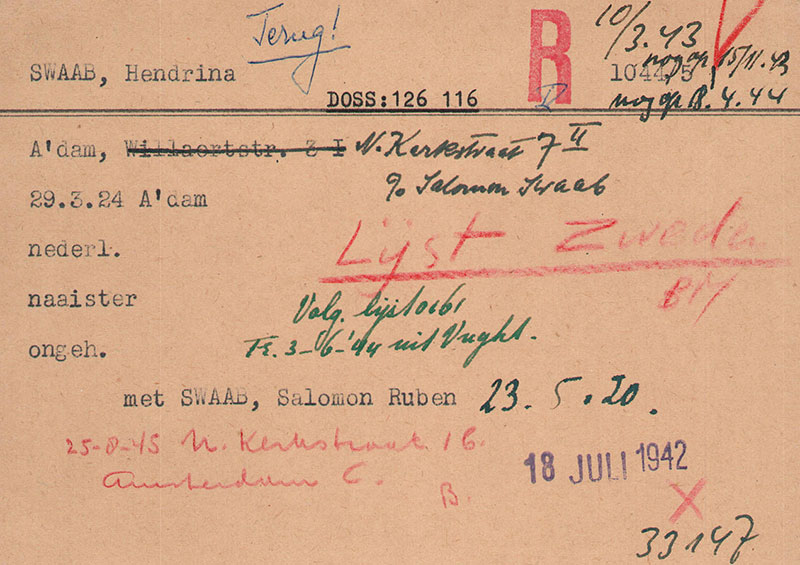 Terug!
R
10/3.43
SWAAB, Hendrina
1044/5
nog op 15/11.43
DOSS:126 116
nog op 8.4.44
A'dam, Willaertstr. 3 I N. Kerkstraat 7 II
c/o Salomon Swaab
29.3.24 A'dam
Lijst Zweden
nederl.
BM
naaister
Volg. lijst
ongeh.
Tr. 3-6-'44 uit Vught.
met SWAAB, Salomon Ruben 23.5.20.
25-8-45 N. Kerkstraat 16.
Amsterdam C.
B.
18 JULI 1942
X
33147